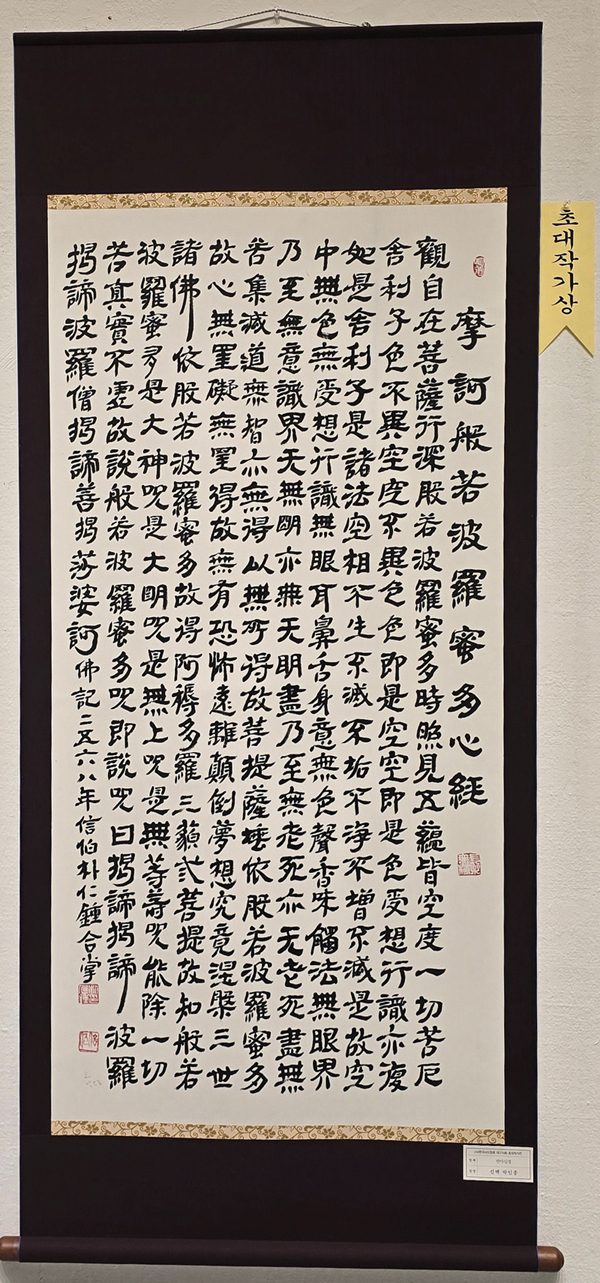 摩訶般若波羅蜜多心經
觀自在菩薩行深般若波羅蜜多時照見五蘊皆空度一切苦厄
舍利子色不異空空不異色色即是空空即是色受想行識亦復
如是舍利子是諸法空相不生不滅不垢不淨不增不減是故空
中無色無受想行識無眼耳鼻舌身意無色聲香味觸法無眼界
乃至無意識界无無明亦無无明盡乃至無老死亦无老死盡無
苦集滅道無智亦無得以無所得故菩提薩埵依般若波羅蜜多
故心無罣礙無罣碍故無有恐怖遠離顛倒夢想究竟涅槃三世
諸佛依般若波羅蜜多故得阿耨多羅三藐弎菩提故知般若
波羅蜜多是大神呪是大明呪是無上呪是無等等呪能除一切
苦真實不虛故說般若波羅蜜多呪即說呪曰揭諦揭諦波羅
揭諦波羅僧揭諦菩提莎婆訶 佛記二五六八年信伯朴仁鍾合掌
초대작가상
반야심경
신백 박인종